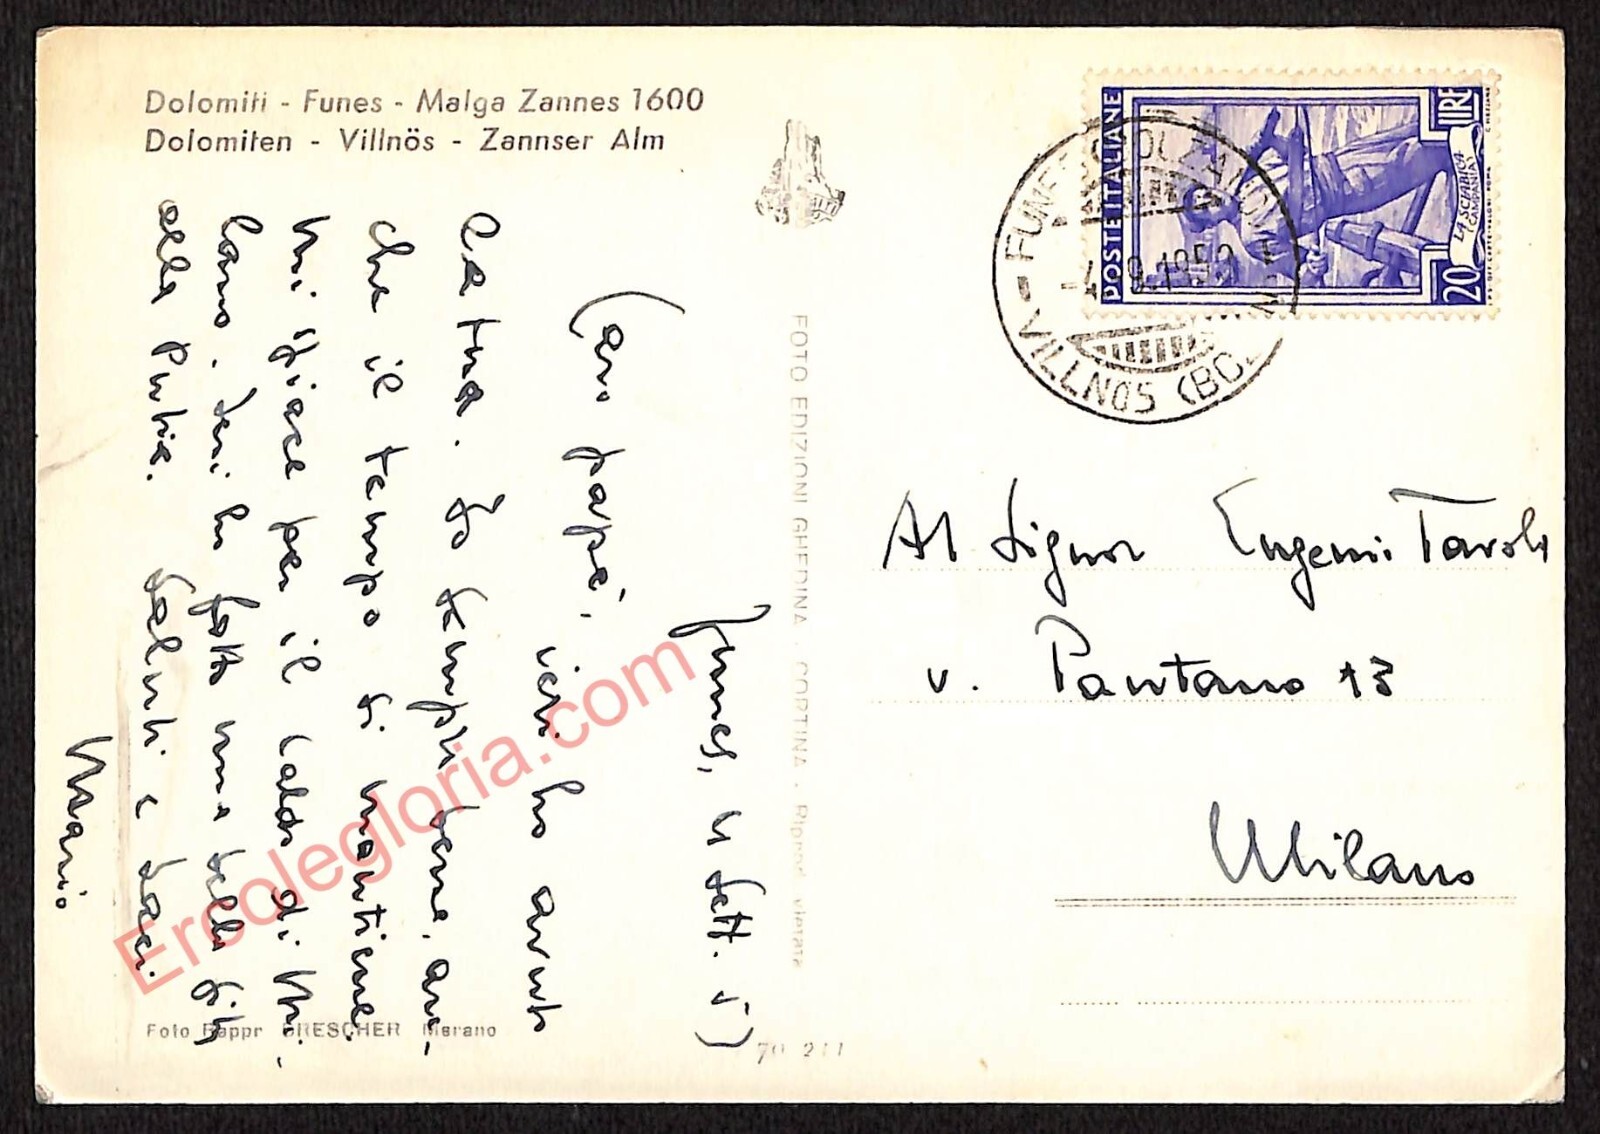 Dolomiti - Funes - Malga Zannes 1600
Dolomiten - Villnös - Zannser Alm
Funes, 4 sett. 5
Caro papà, ieri ho avuto
la tua. Io sempre bene, an-
che il tempo si mantiene.
Mi spiace per il caldo di Mi-
lano. Ieri ho fatto una bella gita
alla Putia. Saluti e baci.
Mario
Foto Rappr DRESCHER Merano
FOTO EDIZIONI GHEDINA - CORTINA - Riprod. vietata
70 211
POSTE ITALIANE
20
LIRE
LA SCIABICA
(CAMPANIA)
FUNES
VILLNOS (BOLZANO)
Al Signor Eugenio Tavola
v. Pantano 13
Milano
Ercolegloria.com